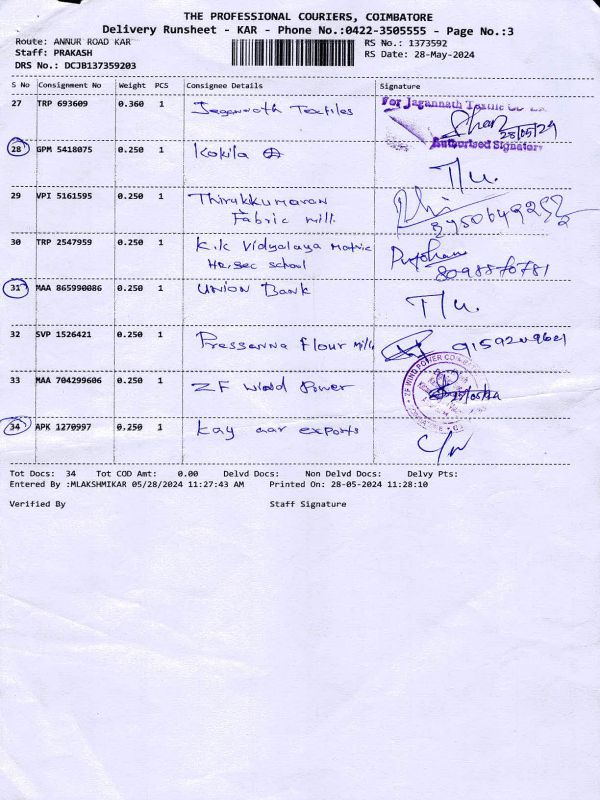 THE PROFESSIONAL COURIERS, COIMBATORE
Delivery Runsheet - KAR - Phone No.:0422-3505555 - Page No.:3
Route: ANNUR ROAD KAR RS No.: 1373592
Staff: PRAKASH RS Date: 28-May-2024
DRS No.: DCJB137359203
S No Consignment No Weight PCS Consignee Details Signature
27 TRP 693609 0.360 1 Jagannath Textiles For Jagannath Textile
28/05/24
Authorised Signatory
28 GPM 5418075 0.250 1 Kokila
T/u.
29 VPI 5161595 0.250 1 Thirukkumaran
Fabric mill.
30 TRP 2547959 0.250 1 K.K Vidyalaya Matric
HR.Sec School 8098870781
31 MAA 865990086 0.250 1 UNION Bank
T/u.
32 SVP 1526421 0.250 1 Pressanna Flour Mill
33 MAA 704299606 0.250 1 ZF Wind Power
ZF WIND POWER COIMBATORE
34 APK 1270997 0.250 1 Kay aar exports
Tot Docs: 34 Tot COD Amt: 0.00 Delvd Docs: Non Delvd Docs: Delvy Pts:
Entered By :MLAKSHMIKAR 05/28/2024 11:27:43 AM Printed On: 28-05-2024 11:28:10
Verified By Staff Signature